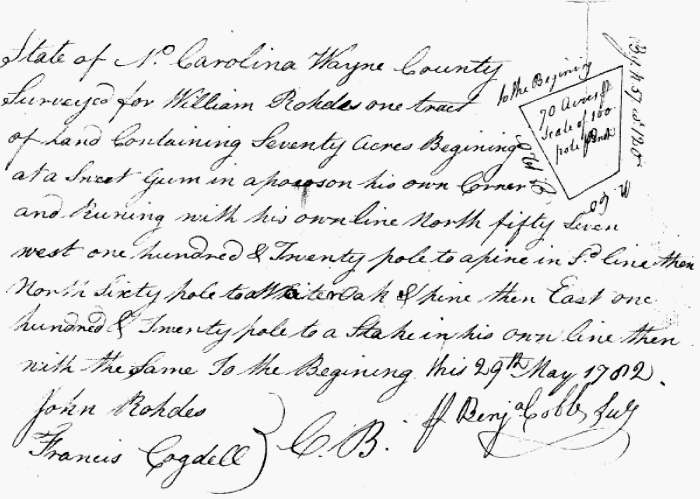 State of No Carolina Wayne County
Surveyed for William Rohdes one tract
of Land Containing Seventy Acres Begining
at a Sweet Gum in a pocoson his own Corner
and Runing with his own line North fifty Seven
west one hundred & Twenty pole to a pine in Sd line then
North Sixty pole to a White Oak & pine then East one
hundred & Twenty pole to a Stake in his own line then
with the Same To the Begining this 29th May 1782.
John Rohdes
Francis Cogdell
C. B.
Benja Cobb Sur
to the Begining
70 Acres
Scale of 100
pole
N. 60
E. 120